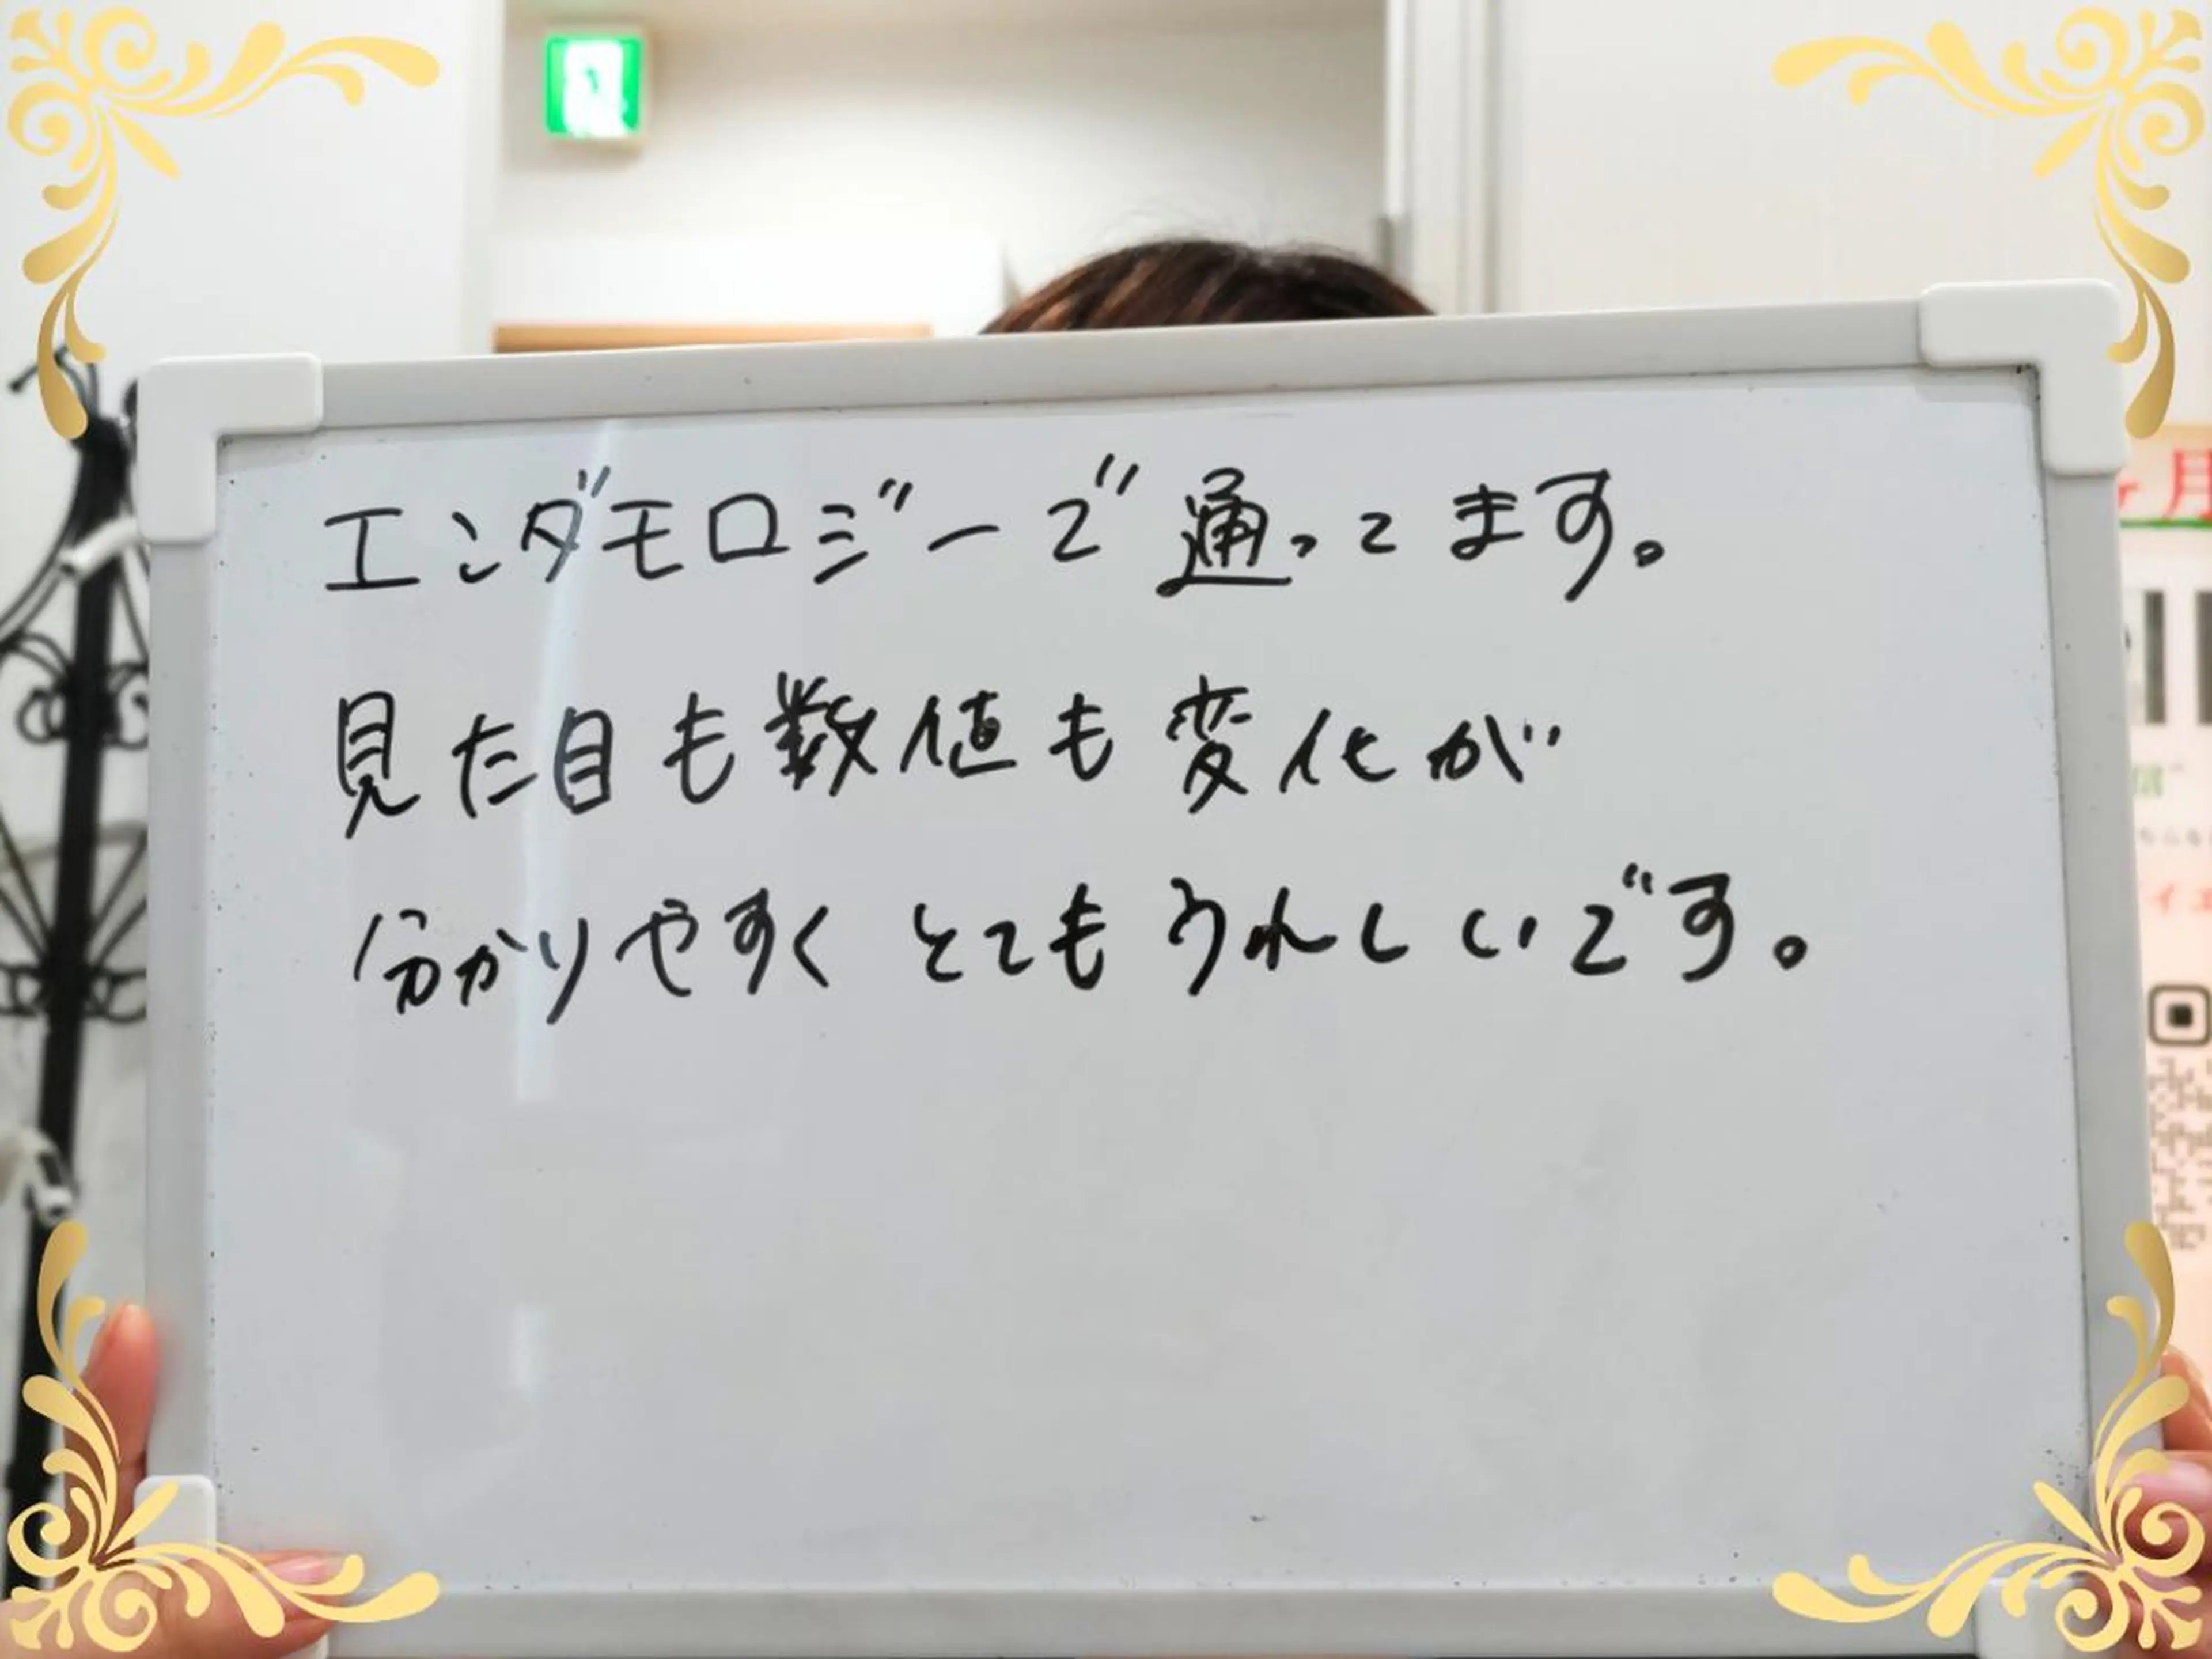 エンダモロジーで通ってます。
見た目も数値も変化が
分かりやすく とても うれしいです。
月